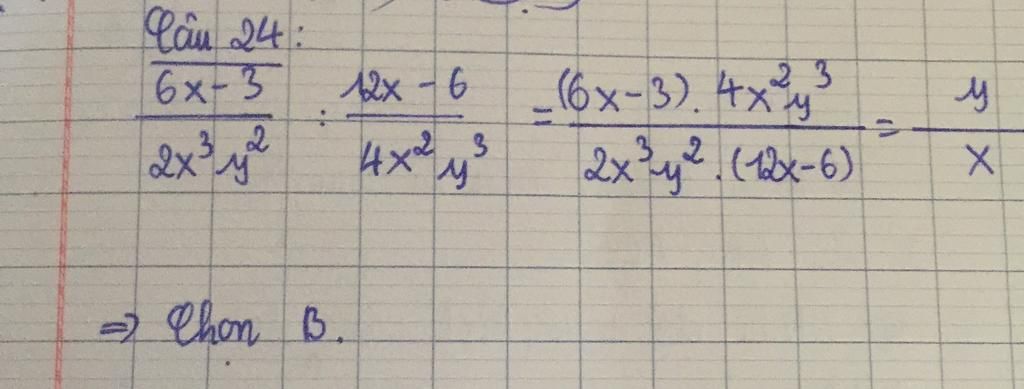 Câu 24:
\frac{6x-3}{2x^3y^2} : \frac{12x-6}{4x^2y^3} = \frac{(6x-3).4x^2y^3}{2x^3y^2.(12x-6)} = \frac{y}{x}
=> Chọn B.